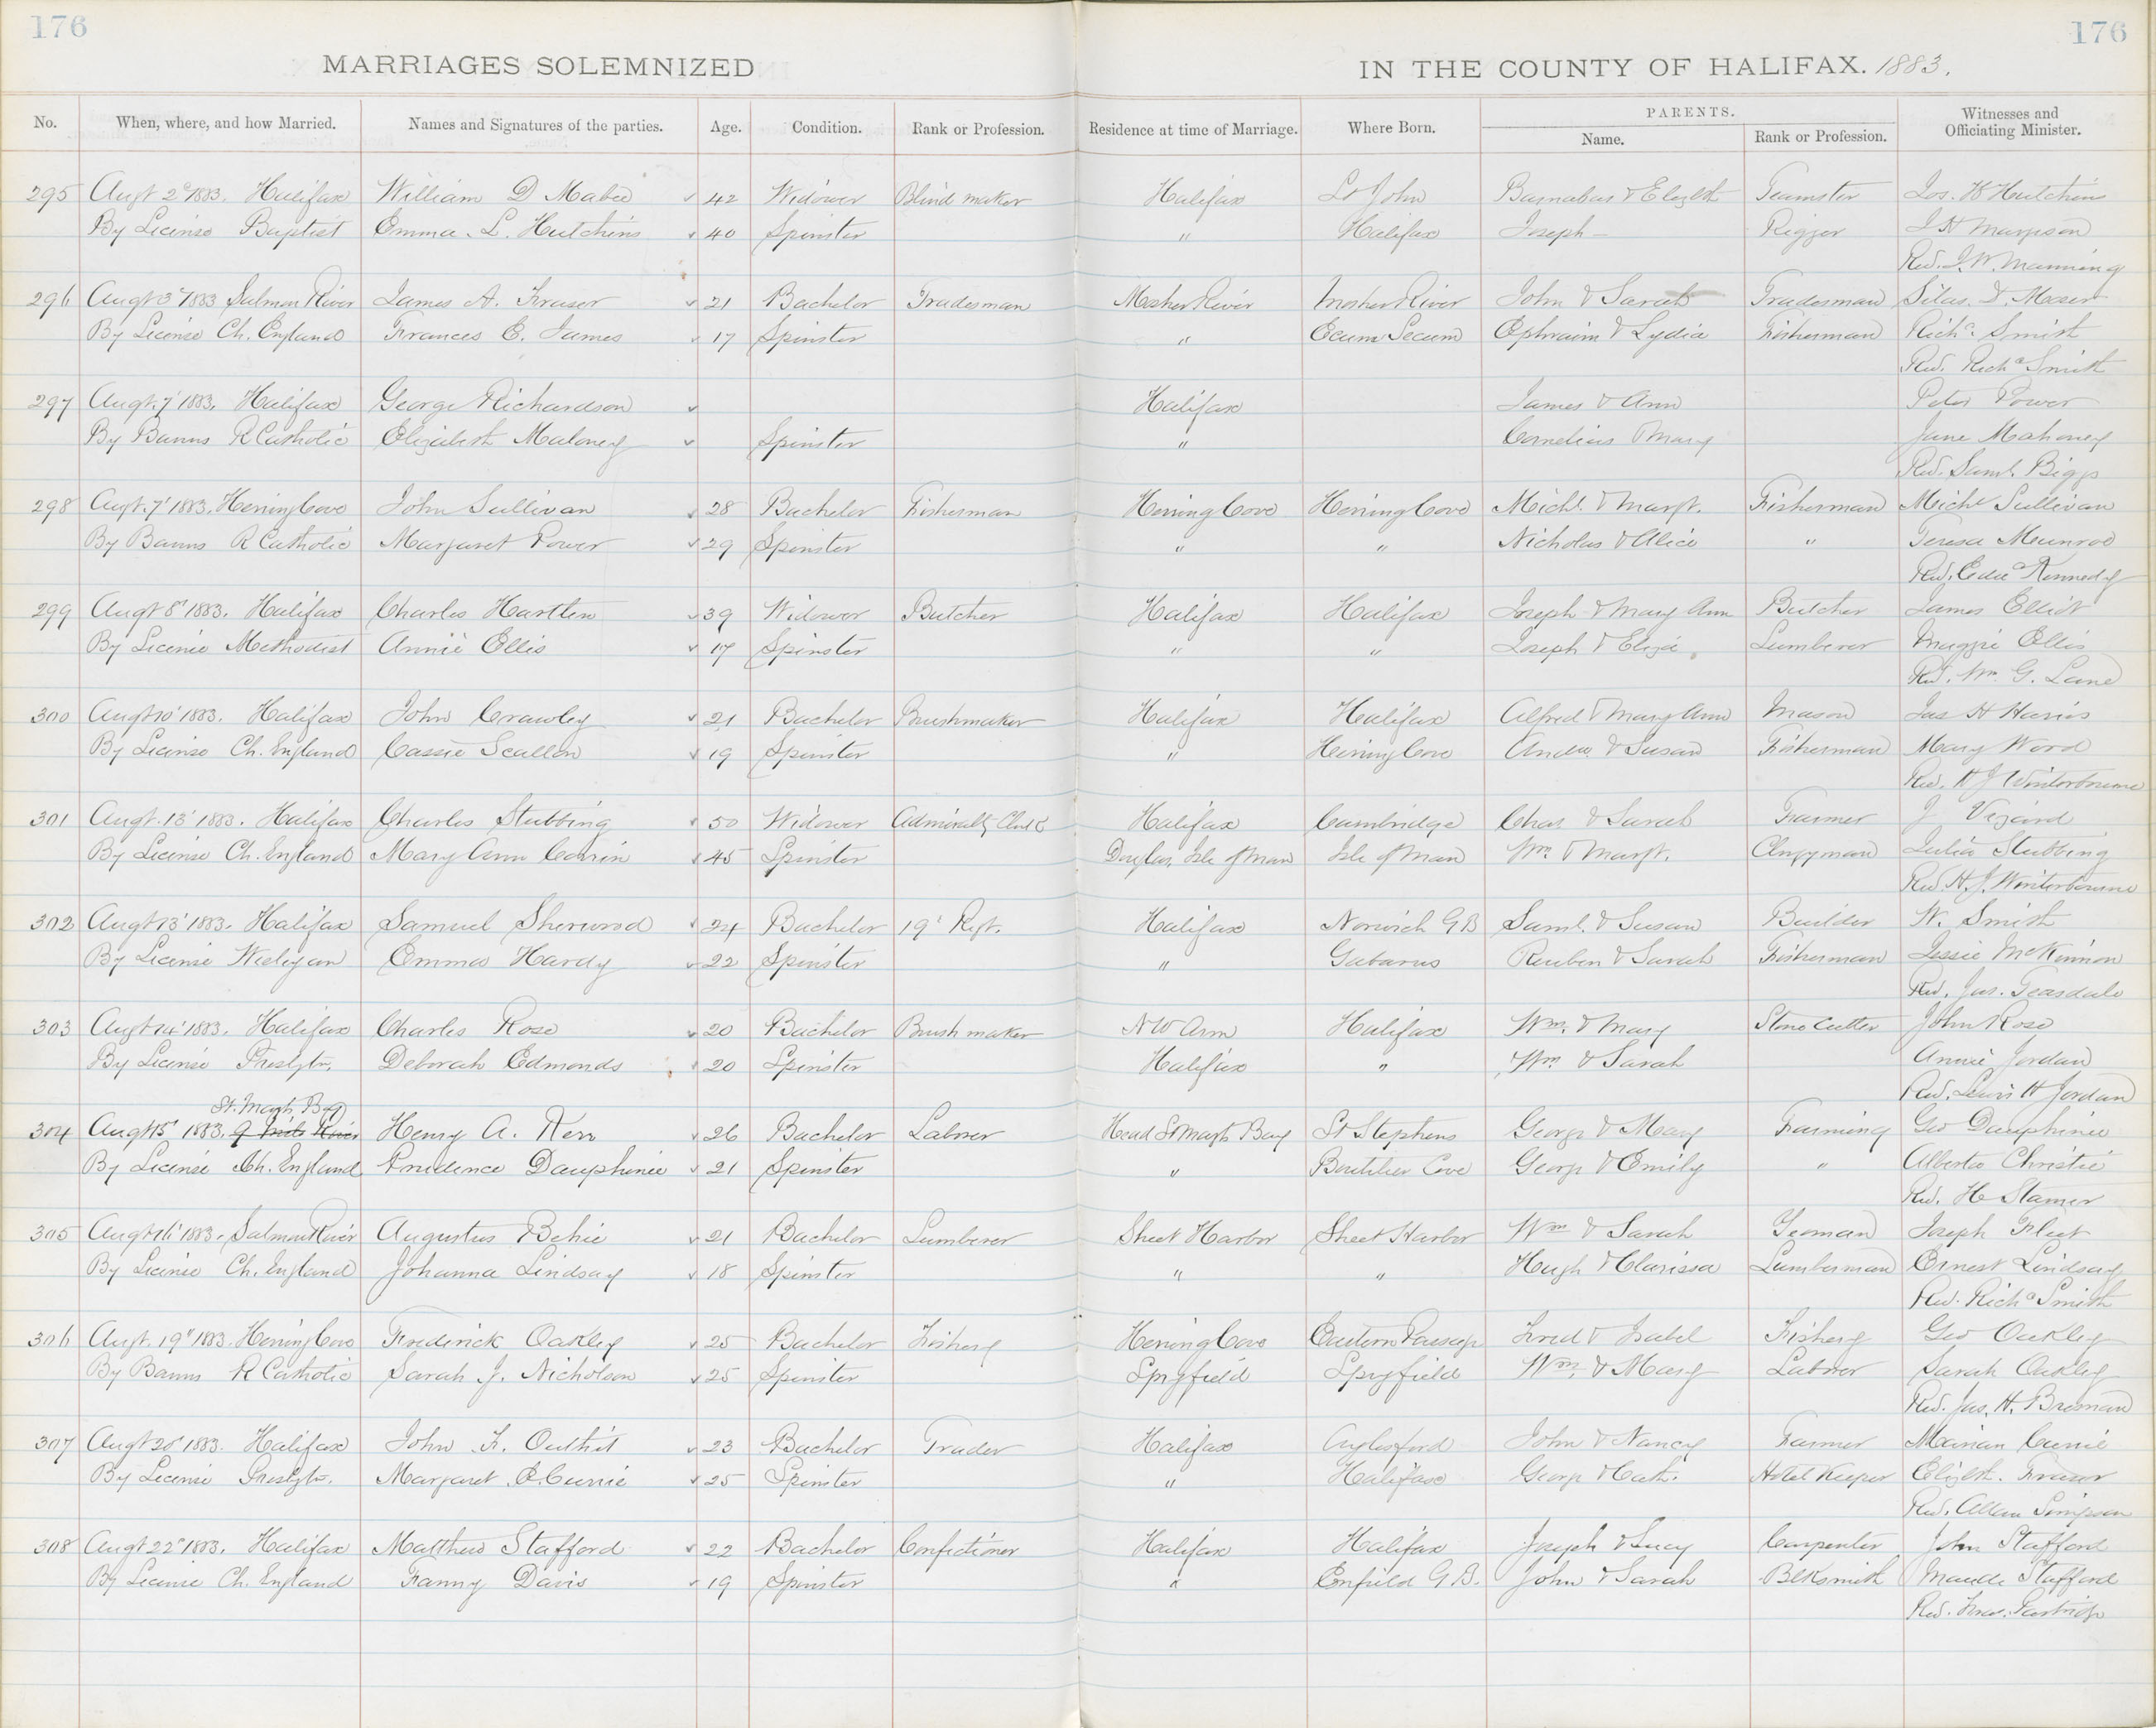 176
176
MARRIAGES SOLEMNIZED IN THE COUNTY OF HALIFAX. 1883.
No. When, where, and how Married. Names and Signatures of the parties. Age. Condition. Rank or Profession. Residence at time of Marriage. Where Born. PARENTS. Name. Rank or Profession. Witnesses and Officiating Minister.
295 Augt 2d 1883. Halifax William D Mabee 42 Widower Blind maker Halifax St John Barnabas & Elizbth Teamster Jos. H Hutchins
By License Baptist Emma L. Hutchins 40 Spinster " Halifax Joseph – Rigger
Rev. J. W. Manning
296 Augt 3d 1883 Salmon River James A. Fraser 21 Bachelor Tradesman Mosher River Mosher River John & Sarah Tradesman Silas D. Moser
By License Ch. England Frances E. James 17 Spinster " Ecum Secum Ephraim & Lydia Fisherman Richd Smith
Rev. Richd Smith
297 Augt. 7' 1883. Halifax George Richardson Halifax James & Ann Peter Power
By Banns R Catholic Elizabeth Maloney Spinster " Cornelius & Mary Jane Mahoney
Rev. Saml. Biggs
298 Augt. 7' 1883. Herring Cove John Sullivan 28 Bachelor Fisherman Herring Cove Herring Cove Michl. & Margt. Fisherman Michl Sullivan
By Banns R Catholic Margaret Power 29 Spinster " " Nicholas & Alice " Teresa Munroe
Rev. Kennedy
299 Augt 8' 1883. Halifax Charles Hartlen 39 Widower Butcher Halifax Halifax Joseph & Mary Ann Butcher James Elliot
By License Methodist Annie Ellis 17 Spinster " " Joseph & Eliza Lumberer Maggie Ellis
Rev. Wm. G. Lane
300 Augt 10' 1883. Halifax John Crawley 21 Bachelor Brushmaker Halifax Halifax Alfred & Mary Ann Mason Jas H Harris
By License Ch. England Cassie Scallon 19 Spinster " Herring Cove Andw. & Susan Fisherman Mary Wood
Rev. H J Winterbourne
301 Augt. 13' 1883. Halifax Charles Stubbing 50 Widower Admiralty Clerk Halifax Cambridge Chas. & Sarah Farmer J Vizard
By License Ch. England Mary Ann Corrin 45 Spinster Douglas, Isle of Man Isle of Man Wm. & Margt. Clergyman Julia Stubbing
Rev. H. J. Winterbourne
302 Augt 13' 1883. Halifax Samuel Sherwood 24 Bachelor 19' Regt. Halifax Norwich G B Saml. & Susan Builder W. Smith
By License Wesleyan Emma Hardy 22 Spinster " Gabarus Reuben & Sarah Fisherman Jessie McKinnon
Rev. Jas. Teasdale
303 Augt 14' 1883. Halifax Charles Rose 20 Bachelor Brush maker N W Arm Halifax Wm. & Mary Stone Cutter John Rose
By License Presbytn. Deborah Edmonds 20 Spinster Halifax " Wm. & Sarah Annie Jordan
Rev. Lewis H Jordan
St. Margts Bay
304 Augt 15' 1883. 9 Mile River Henry A. Kerr 26 Bachelor Laborer Head St Margts Bay St Stephens George & Mary Farming Geo Dauphinee
By License Ch. England Prudence Dauphinee 21 Spinster " Boutilier Cove George & Emily " Alberta Christie
Rev. H Stamer
305 Augt 16' 1883. Salmon River Augustus Behie 21 Bachelor Lumberer Sheet Harbor Sheet Harbor Wm & Sarah Yeoman Joseph Fleet
By License Ch. England Johanna Lindsay 18 Spinster " " Hugh & Clarissa Lumberman Ernest Lindsay
Rev. Richd Smith
306 Augt. 19' 1883. Herring Cove Frederick Oakley 25 Bachelor Fishery Herring Cove Eastern Passage Fred & Isabel Fishery Geo Oakley
By Banns R Catholic Sarah J. Nicholson 25 Spinster Spryfield Spryfield Wm. & Mary Laborer Sarah Oakley
Rev. Jas. H.
307 Augt 20' 1883. Halifax John F. Outhit 23 Bachelor Trader Halifax Aylesford John & Nancy Farmer Marian Currie
By License Presbytn. Margaret E. Currie 25 Spinster " Halifax George & Cath. Hotel Keeper Elizbth. Fraser
Rev. Allan Simpson
308 Augt 22' 1883. Halifax Matthew Stafford 22 Bachelor Confectioner Halifax Halifax Joseph & Lucy Carpenter John Stafford
By License Ch. England Fanny Davis 19 Spinster " Enfield G.B. John & Sarah Blksmith Maude Stafford
Rev. Fras. Partridge